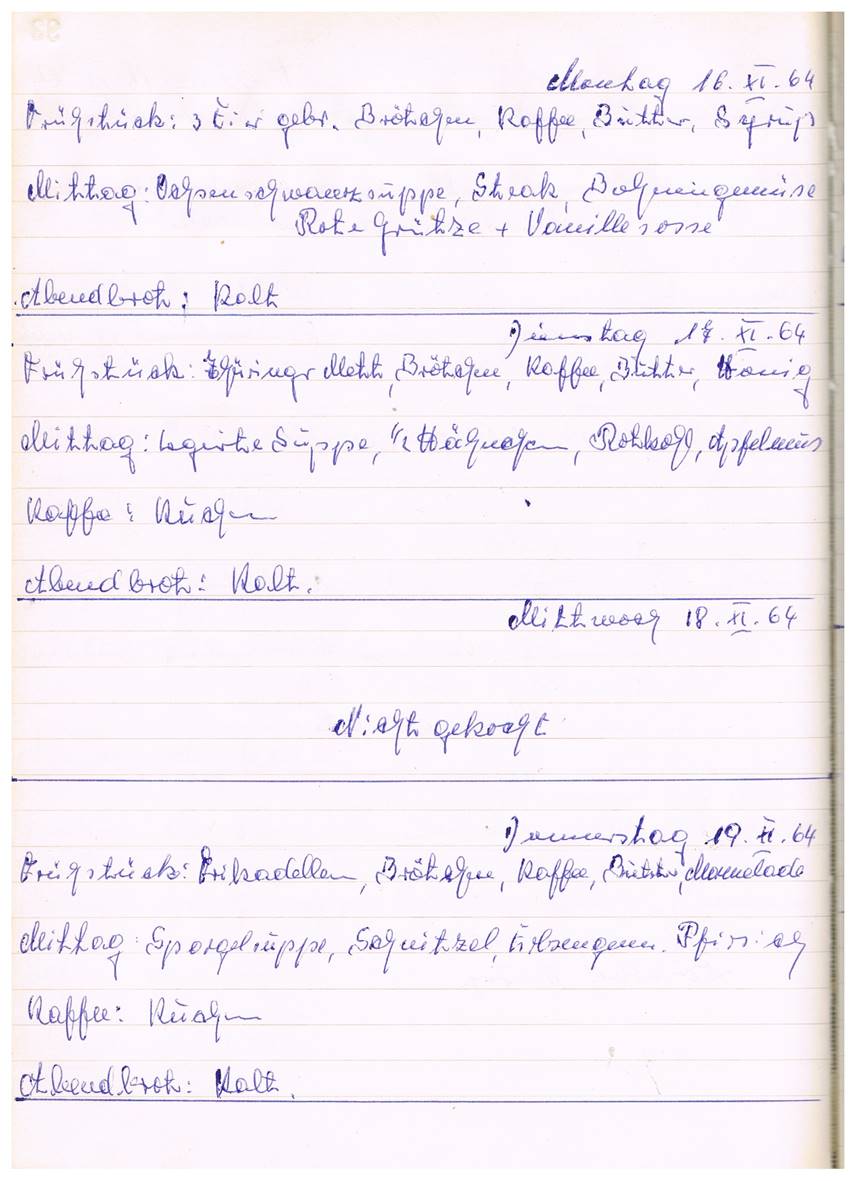 Montag 16. XI. 64
Frühstück: 3 Eier gebr. Brötchen, Kaffee, Butter, Syrup
Mittag: Ochsenschwanzsuppe, Steak, Bohnengemüse
Rote Grütze + Vanillesosse
Abendbrot: Kalt
Dienstag 17. XI. 64
Frühstück: Thüringr Mett, Brötchen, Kaffee, Butter, Honig
Mittag: Legierte Suppe, 1/2 Hähnchen, Rotkohl, Apfelmus
Kaffee: Kuchen
Abendbrot: Kalt.
Mittwoch 18. XI. 64
Nicht gekocht
Donnerstag 19. XI. 64
Frühstück: Frikadellen, Brötchen, Kaffee, Butter, Marmelade
Mittag: Spargelsuppe, Schnitzel, Erbsengem. Pfirsich
Kaffee: Kuchen
Abendbrot: Kalt.